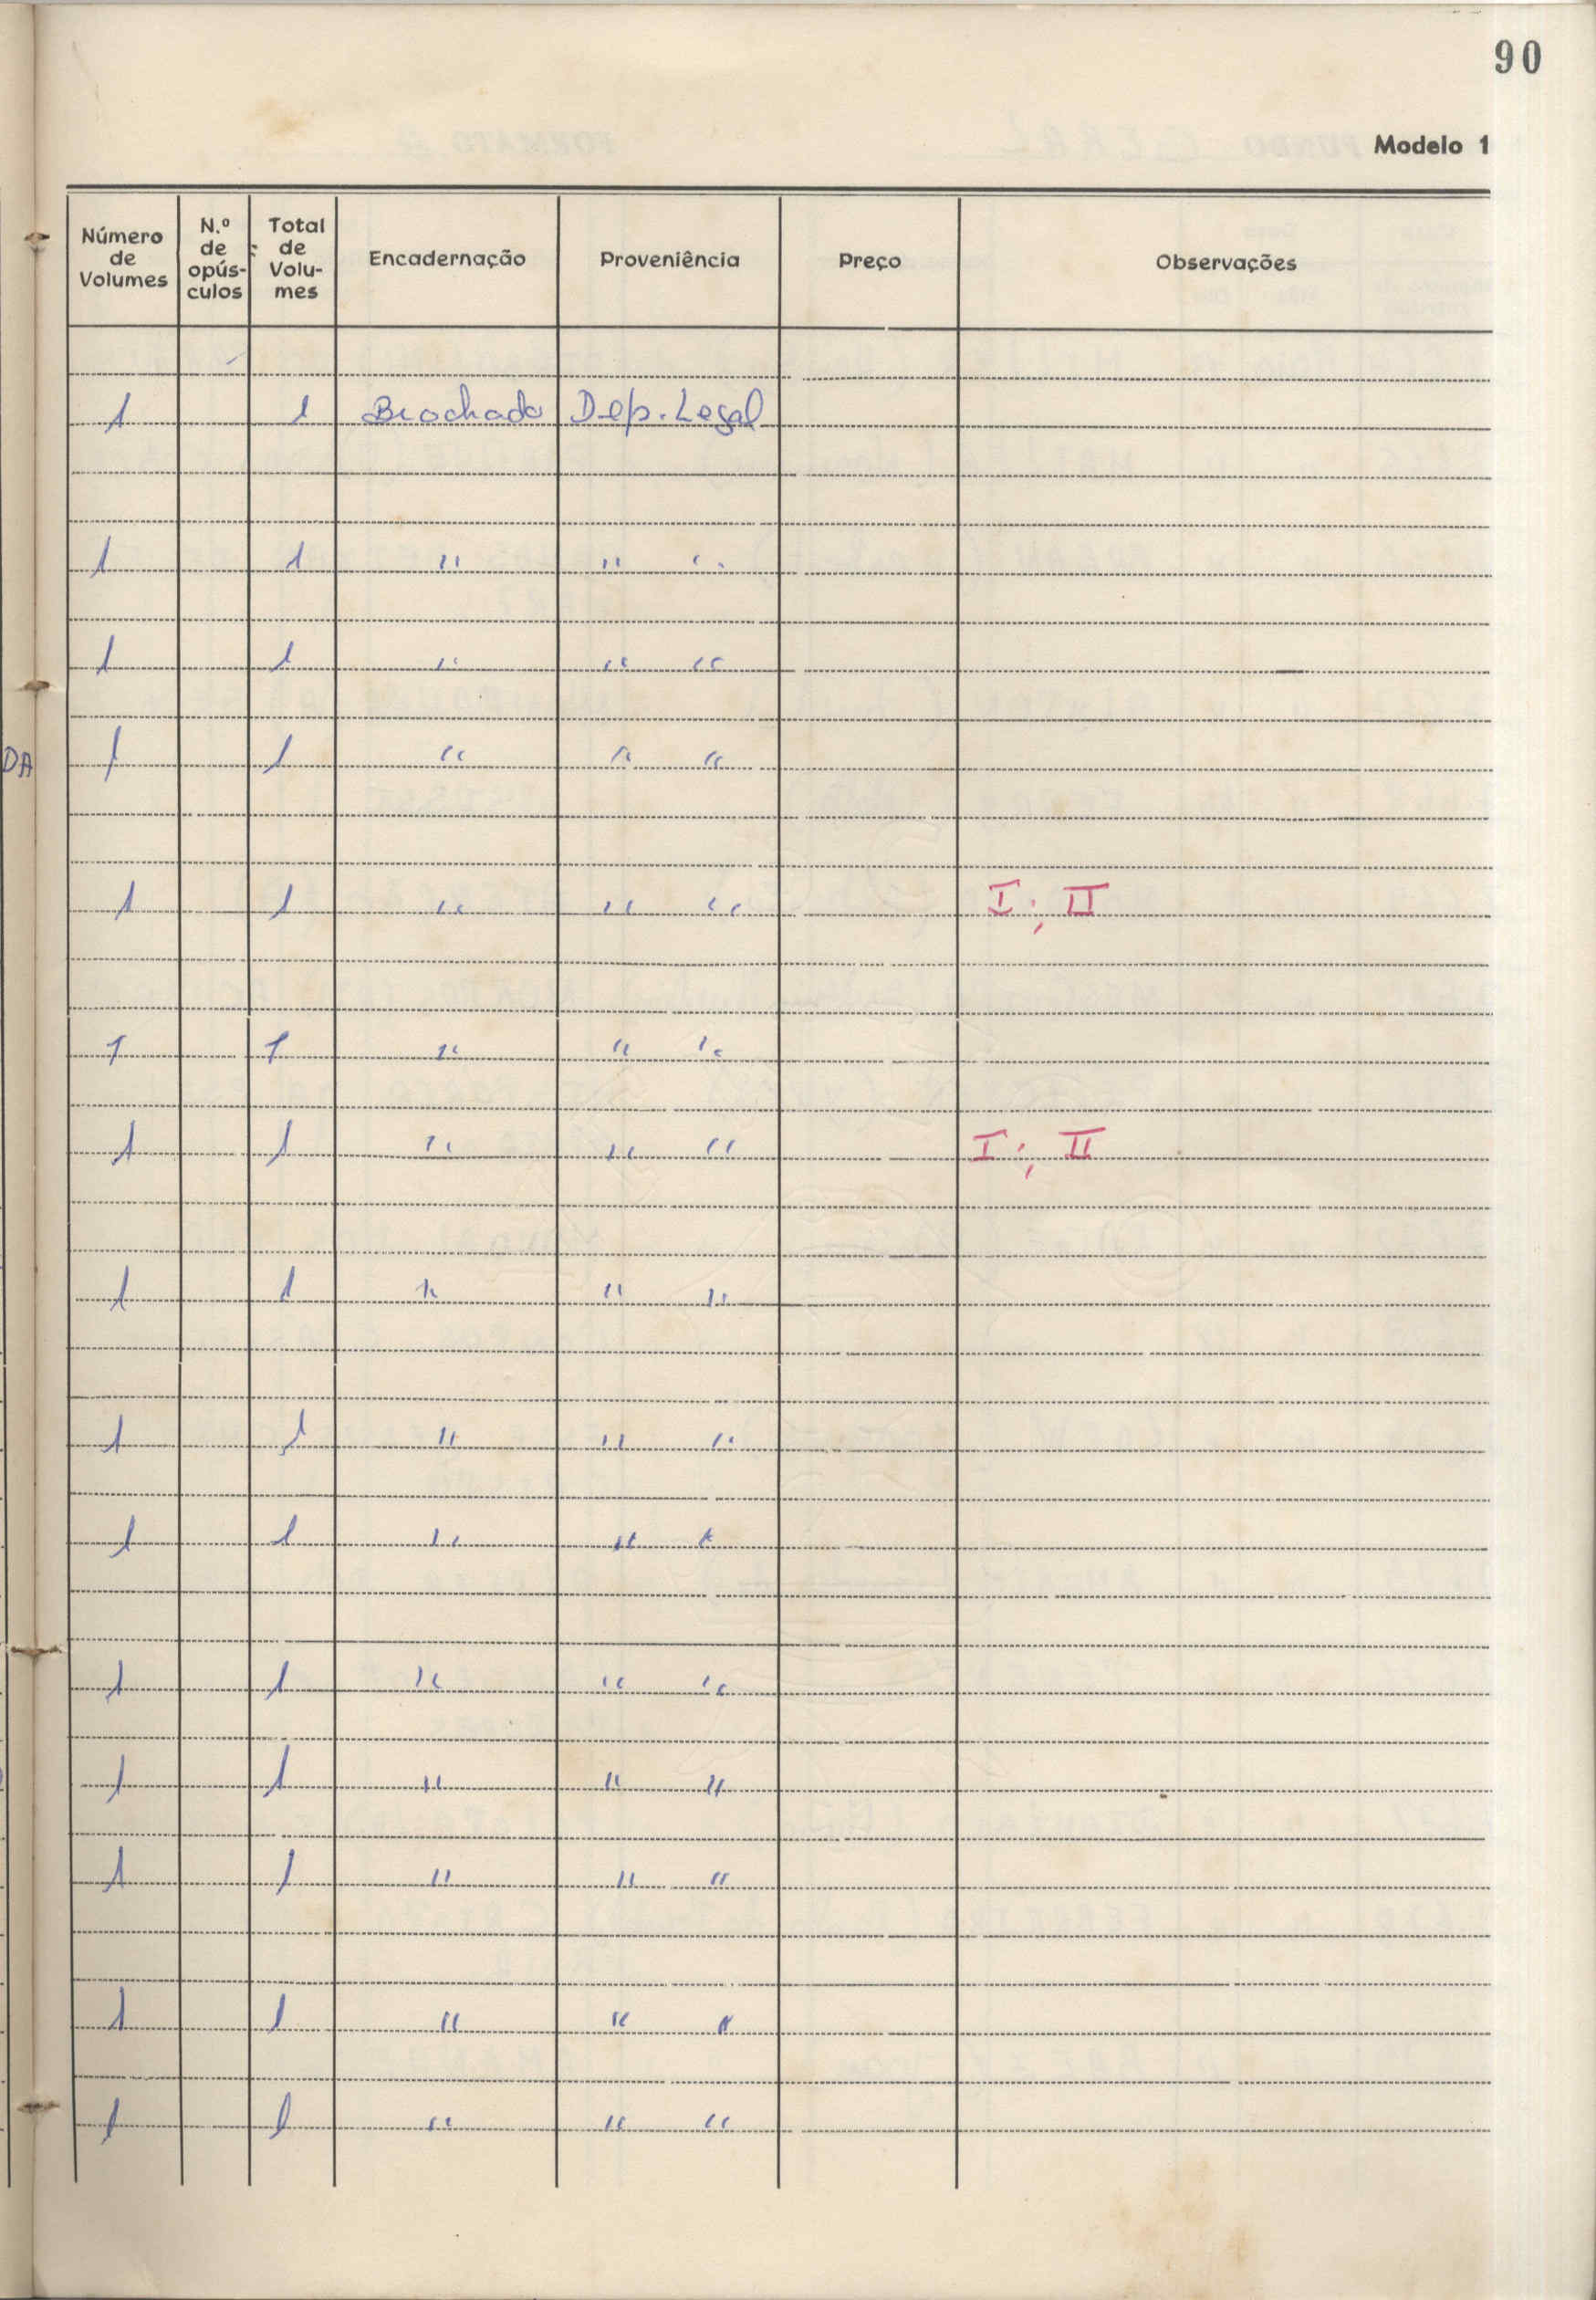 90
Modelo 1
Número de Volumes N.º de opús- culos Total de Volu- mes Encadernação Proveniência Preço Observações
1 1 Brochado Dep. Legal
1 1 " " "
1 1 " " "
DA 1 1 " " "
1 1 " " " I ; II
1 1 " " "
1 1 " " " I ; II
1 1 " " "
1 1 " " "
1 1 " " "
1 1 " " "
1 1 " " "
1 1 " " "
1 1 " " "
1 1 " " "